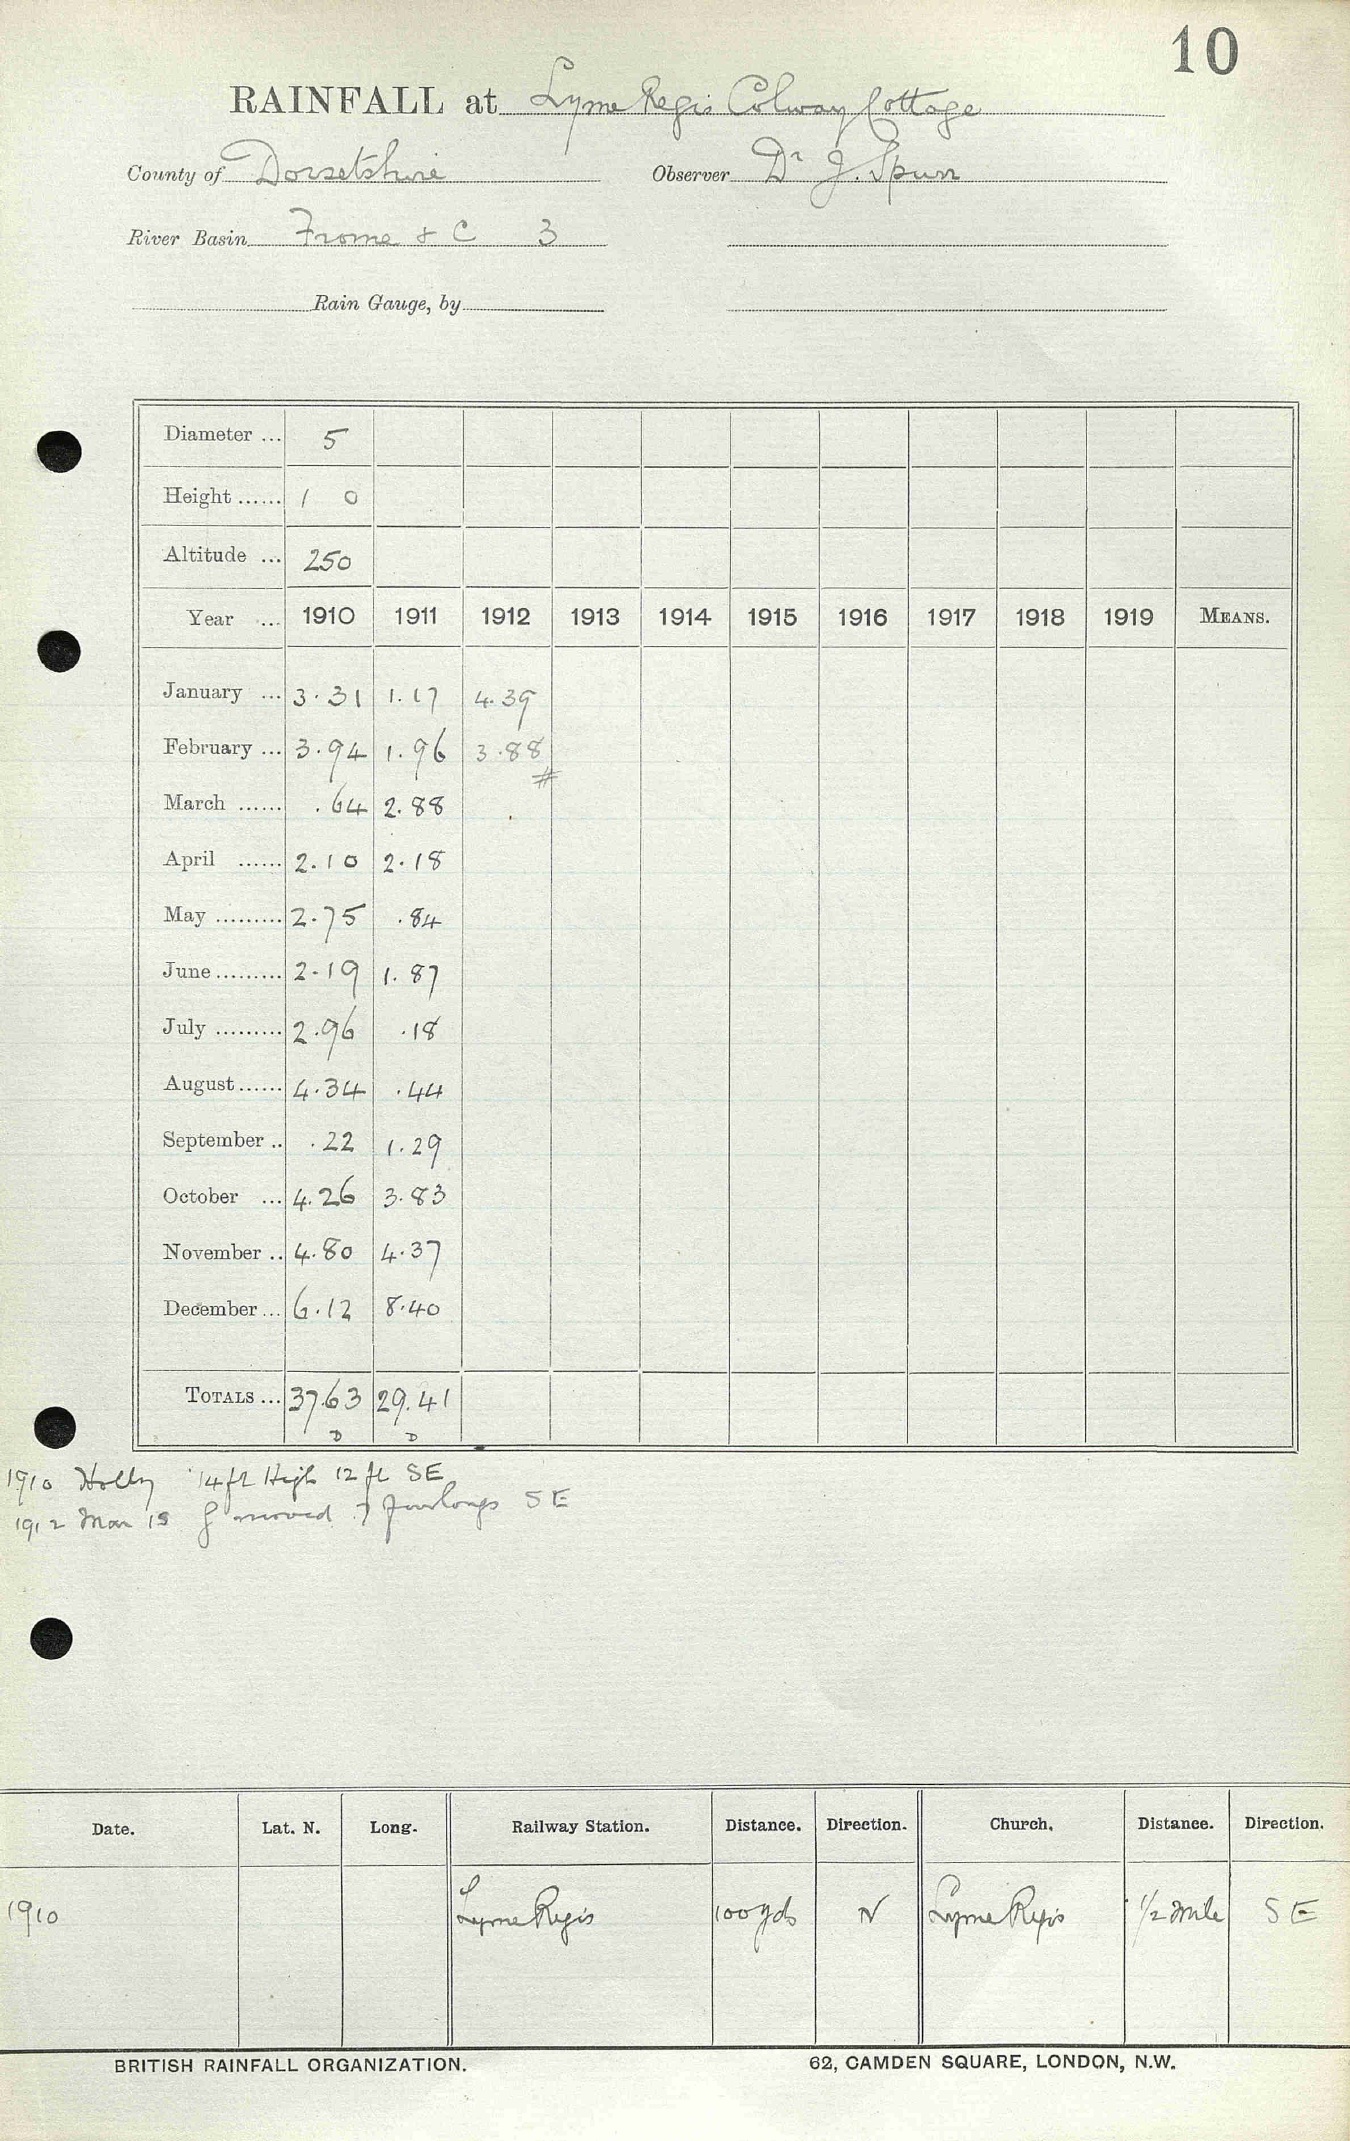 10
RAINFALL at Lyme Regis Colway Cottage
County of Dorsetshire Observer Dr J. Spurr
River Basin Frome & C 3
Rain Gauge, by
Diameter ... 5
Height ...... 1 0
Altitude ... 250
Year ... 1910 1911 1912 1913 1914 1915 1916 1917 1918 1919 MEANS.
January ... 3.31 1.17 4.39
February ... 3.94 1.96 3.88
#
March ...... .64 2.88
April ...... 2.10 2.18
May ......... 2.75 .84
June ......... 2.19 1.87
July ......... 2.96 .18
August ...... 4.34 .44
September .. .22 1.29
October ... 4.26 3.83
November .. 4.80 4.37
December ... 6.12 8.40
TOTALS ... 37.63 29.41
D D
1910 Holly 14ft High 12 ft SE
1912 Mar 15 g moved 7 furlongs SE
Date. Lat. N. Long. Railway Station. Distance. Direction. Church. Distance. Direction.
1910 Lyme Regis 100 yds N Lyme Regis 1/2 mile SE
BRITISH RAINFALL ORGANIZATION. 62, CAMDEN SQUARE, LONDON, N.W.